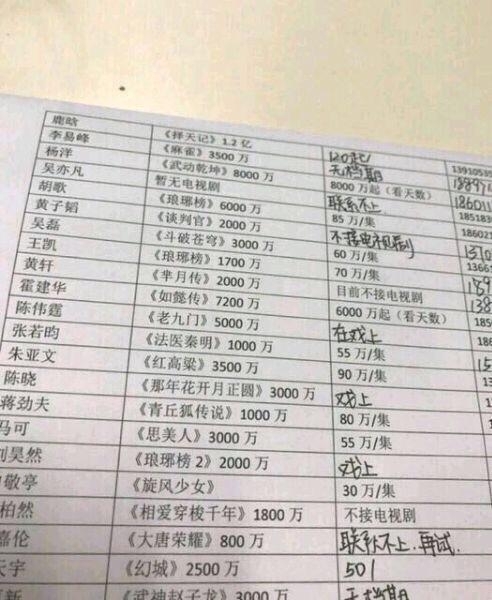 鹿晗 《择天记》1.2 亿 120起/
李易峰 《麻雀》3500 万 无档期
杨洋 《武动乾坤》8000 万 8000 万起（看天数）
吴亦凡 暂无电视剧 联系不上
胡歌 《琅琊榜》6000 万 85 万/集
黄子韬 《谈判官》2000 万 不接电视剧
吴磊 《斗破苍穹》3000 万 60 万/集
王凯 《琅琊榜》1700 万 70 万/集
黄轩 《芈月传》2000 万 目前不接电视剧
霍建华 《如懿传》7200 万 6000 万起（看天数）
陈伟霆 《老九门》5000 万 在戏上
张若昀 《法医秦明》1000 万 55 万/集
朱亚文 《红高粱》3500 万 90 万/集
陈晓 《那年花开月正圆》3000 万 戏上
蒋劲夫 《青丘狐传说》1000 万 80 万/集
马可 《思美人》3000 万 55 万/集
昊然 《琅琊榜 2》2000 万 戏上
敬亭 《旋风少女》 30 万/集
柏然 《相爱穿梭千年》1800 万 不接电视剧
嘉伦 《大唐荣耀》800 万 联系不上.再试.
宇 《幻城》2500 万 50/
新 《武神赵子龙》3000 万 无档期